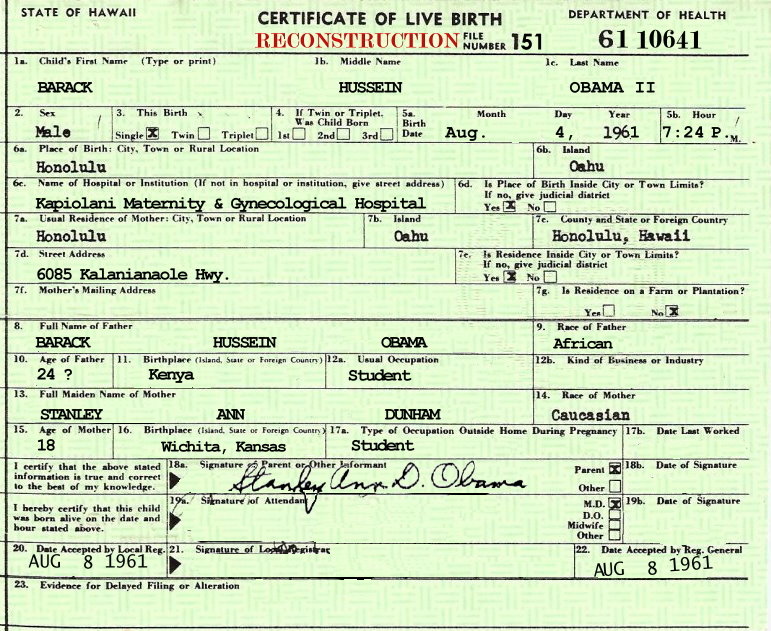 STATE OF HAWAII
CERTIFICATE OF LIVE BIRTH
DEPARTMENT OF HEALTH
RECONSTRUCTION FILE NUMBER 151
61 10641
1a. Child's First Name (Type or print) 1b. Middle Name 1c. Last Name
BARACK HUSSEIN OBAMA II
2. Sex 3. This Birth 4. If Twin or Triplet, Was Child Born 5a. Birth Date Month Day Year 5b. Hour
Male Single X Twin Triplet 1st 2nd 3rd Aug. 4, 1961 7:24 P.M.
6a. Place of Birth: City, Town or Rural Location 6b. Island
Honolulu Oahu
6c. Name of Hospital or Institution (If not in hospital or institution, give street address) 6d. Is Place of Birth Inside City or Town Limits? If no, give judicial district
Kapiolani Maternity & Gynecological Hospital Yes X No
7a. Usual Residence of Mother: City, Town or Rural Location 7b. Island 7c. County and State or Foreign Country
Honolulu Oahu Honolulu, Hawaii
7d. Street Address 7e. Is Residence Inside City or Town Limits? If no, give judicial district
6085 Kalanianaole Hwy. Yes X No
7f. Mother's Mailing Address 7g. Is Residence on a Farm or Plantation?
Yes No X
8. Full Name of Father 9. Race of Father
BARACK HUSSEIN OBAMA African
10. Age of Father 11. Birthplace (Island, State or Foreign Country) 12a. Usual Occupation 12b. Kind of Business or Industry
24 ? Kenya Student
13. Full Maiden Name of Mother 14. Race of Mother
STANLEY ANN DUNHAM Caucasian
15. Age of Mother 16. Birthplace (Island, State or Foreign Country) 17a. Type of Occupation Outside Home During Pregnancy 17b. Date Last Worked
18 Wichita, Kansas Student
I certify that the above stated information is true and correct to the best of my knowledge.
18a. Signature of Parent or Other Informant Parent X Other 18b. Date of Signature
Stanley Ann D. Obama
I hereby certify that this child was born alive on the date and hour stated above.
19a. Signature of Attendant M.D. X D.O. Midwife Other 19b. Date of Signature
20. Date Accepted by Local Reg. 21. Signature of Local Registrar 22. Date Accepted by Reg. General
AUG 8 1961 AUG 8 1961
23. Evidence for Delayed Filing or Alteration